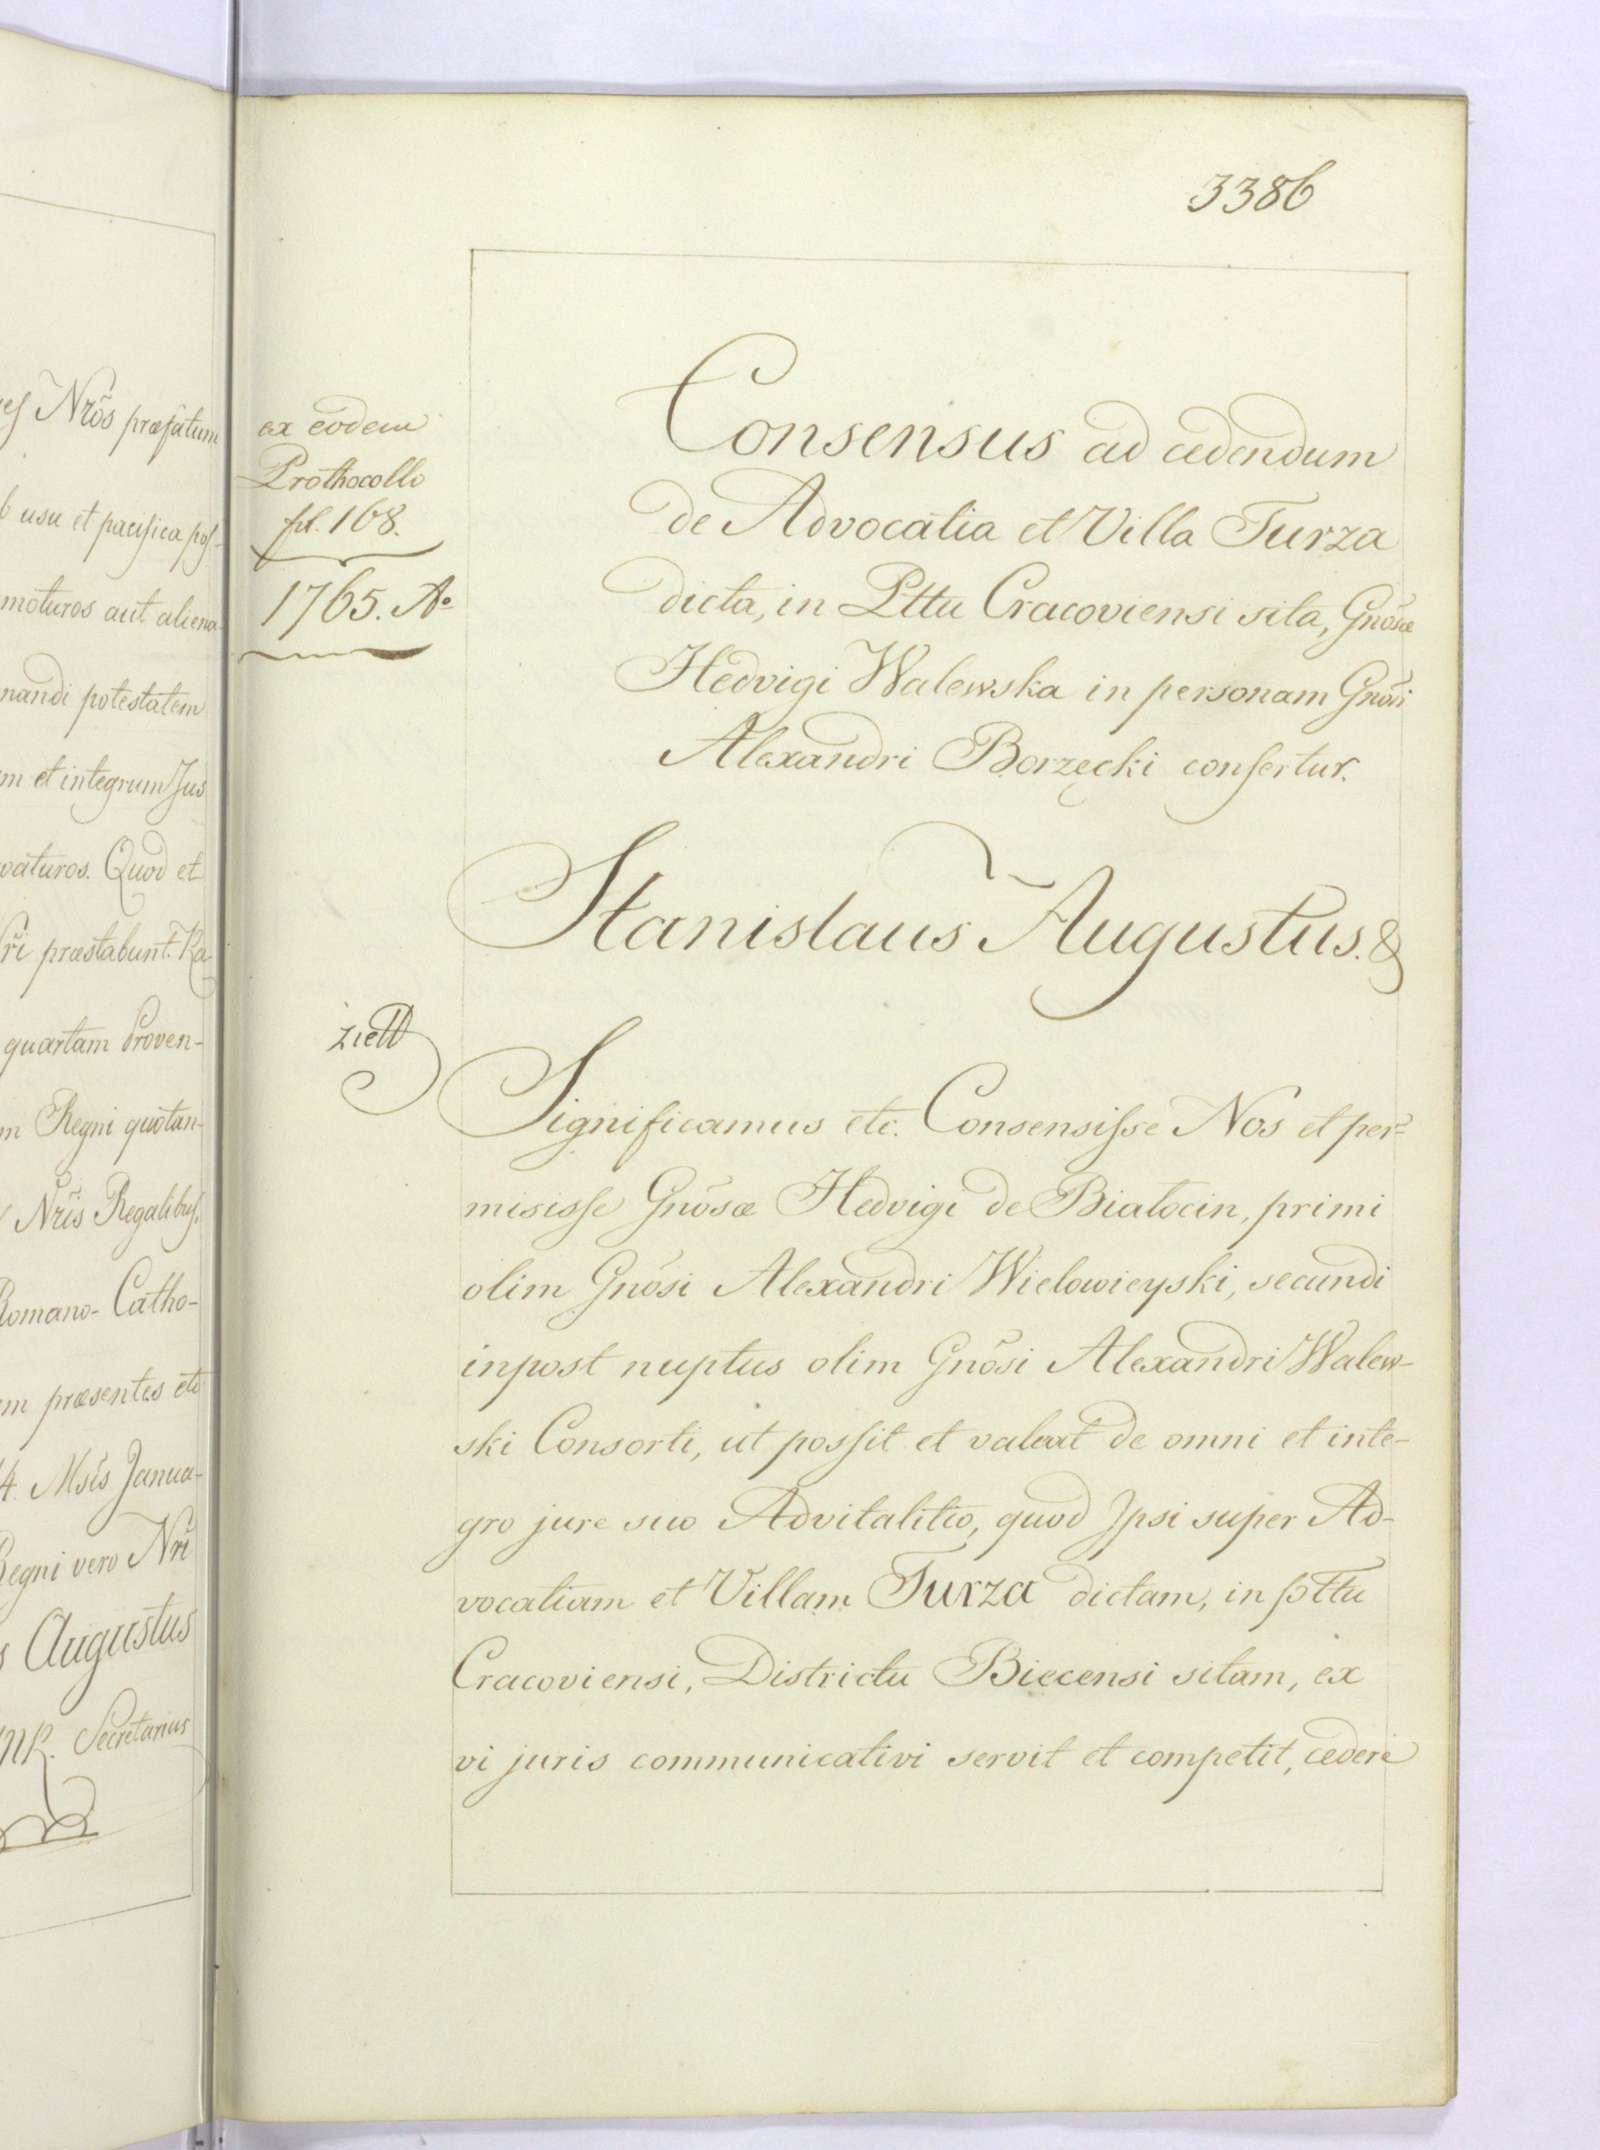 es Nrõs præfatum
usu et pacifica pos-
moturos aut aliena-
nandi potestatem
m et integrum Jus
vaturos. Quod et
præstabunt. Ra-
quartam Proven-
m Regni quotan-
Nrĩs Regalibus
Romano-Catho-
em præsentes etc
4. Msĩs Janua-
Regni vero Nrĩ
s Augustus
Secretarius
3386
ex eodem
Prothocollo
fol. 168.
1765. Aº
Consensus ad cedendum
de Advocatia et Villa Turza
dicta, in Pttu Cracoviensi sita, Gnõsæ
Hedvigi Walewska in personam Gnõsi
Alexandri Borzęcki confertur.
Stanislaus Augustus. &
Significamus etc. Consensisse Nos et per-
misisse Gnõsæ Hedvigi de Białocin, primi
olim Gnõsi Alexandri Wielowieyski, secundi
inpost nuptus olim Gnõsi Alexandri Walew-
ski Consorti, ut possit et valeat de omni et inte-
gro jure suo Advitalitio, quod Ipsi super Ad-
vocatiam et Villam Turza dictam, in pttu
Cracoviensi, Districtu Biecensi sitam, ex
vi juris communicativi servit et competit, cedere